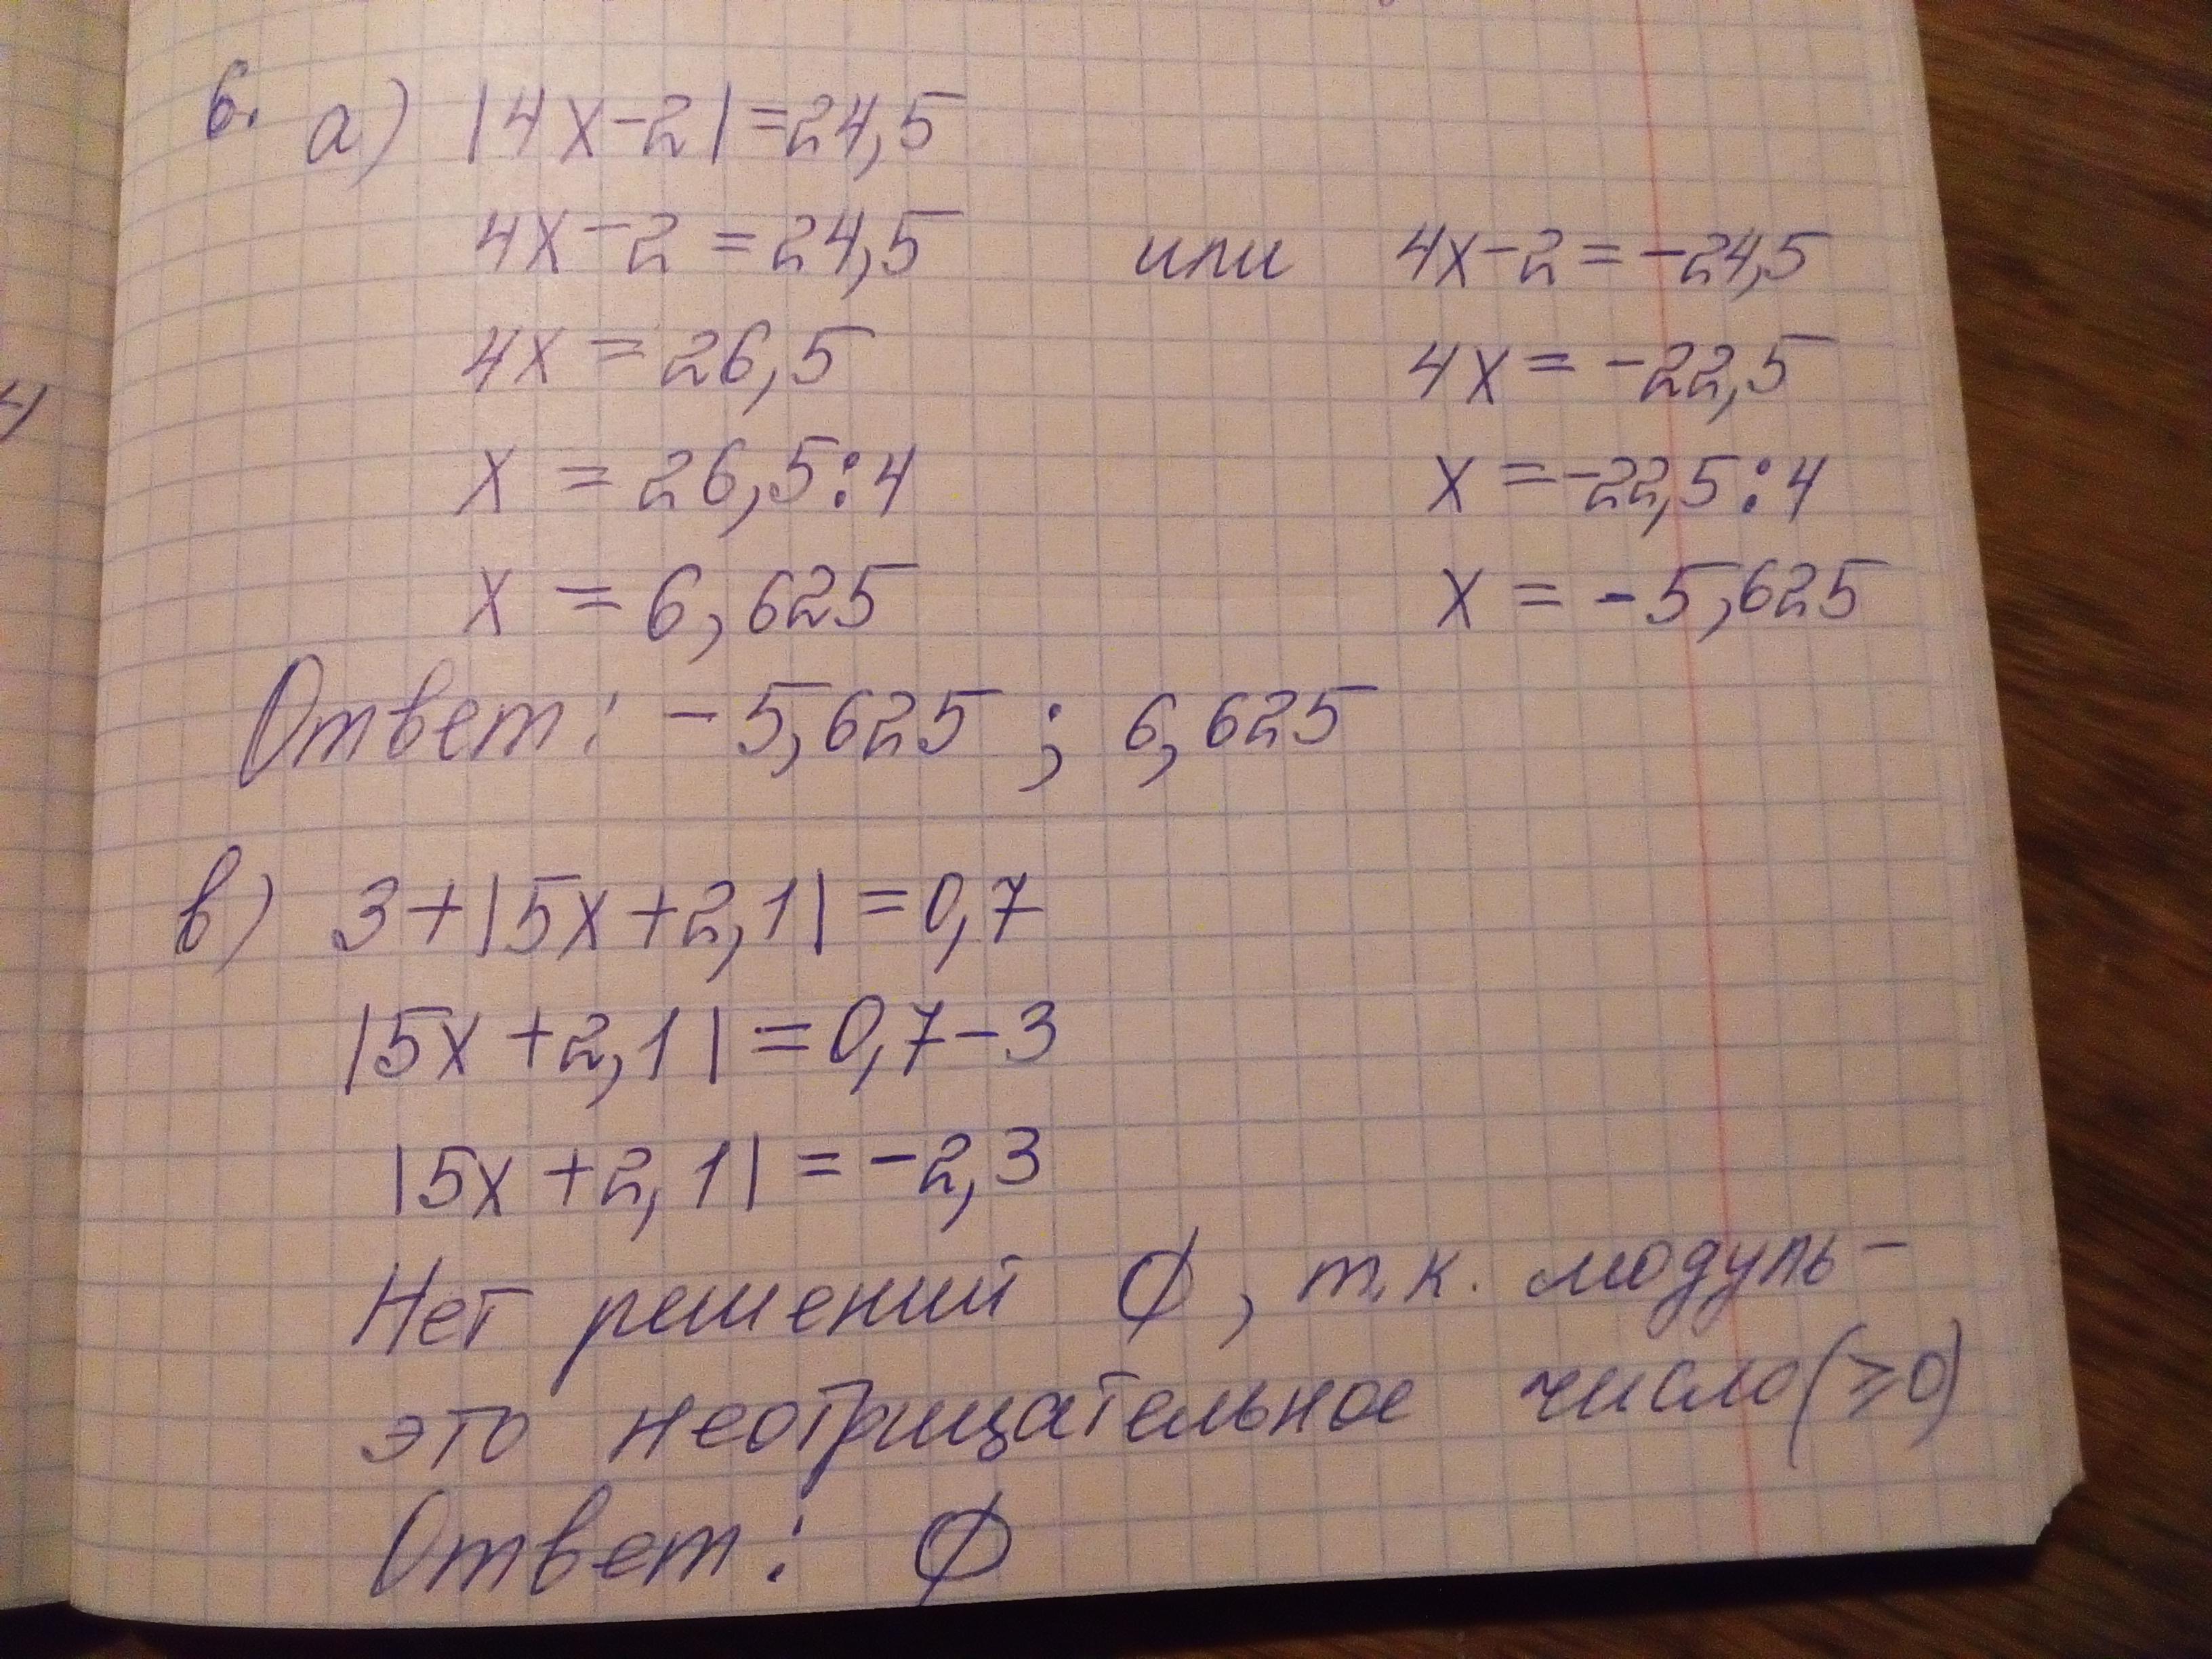 6. а) |4x-2|=24,5
4x-2=24,5 или 4x-2=-24,5
4x=26,5 4x=-22,5
x=26,5:4 x=-22,5:4
x=6,625 x=-5,625
Ответ: -5,625; 6,625
в) 3+|5x+2,1|=0,7
|5x+2,1|=0,7-3
|5x+2,1|=-2,3
Нет решений ∅, т.к. модуль-
это неотрицательное число(⩾0)
Ответ: ∅